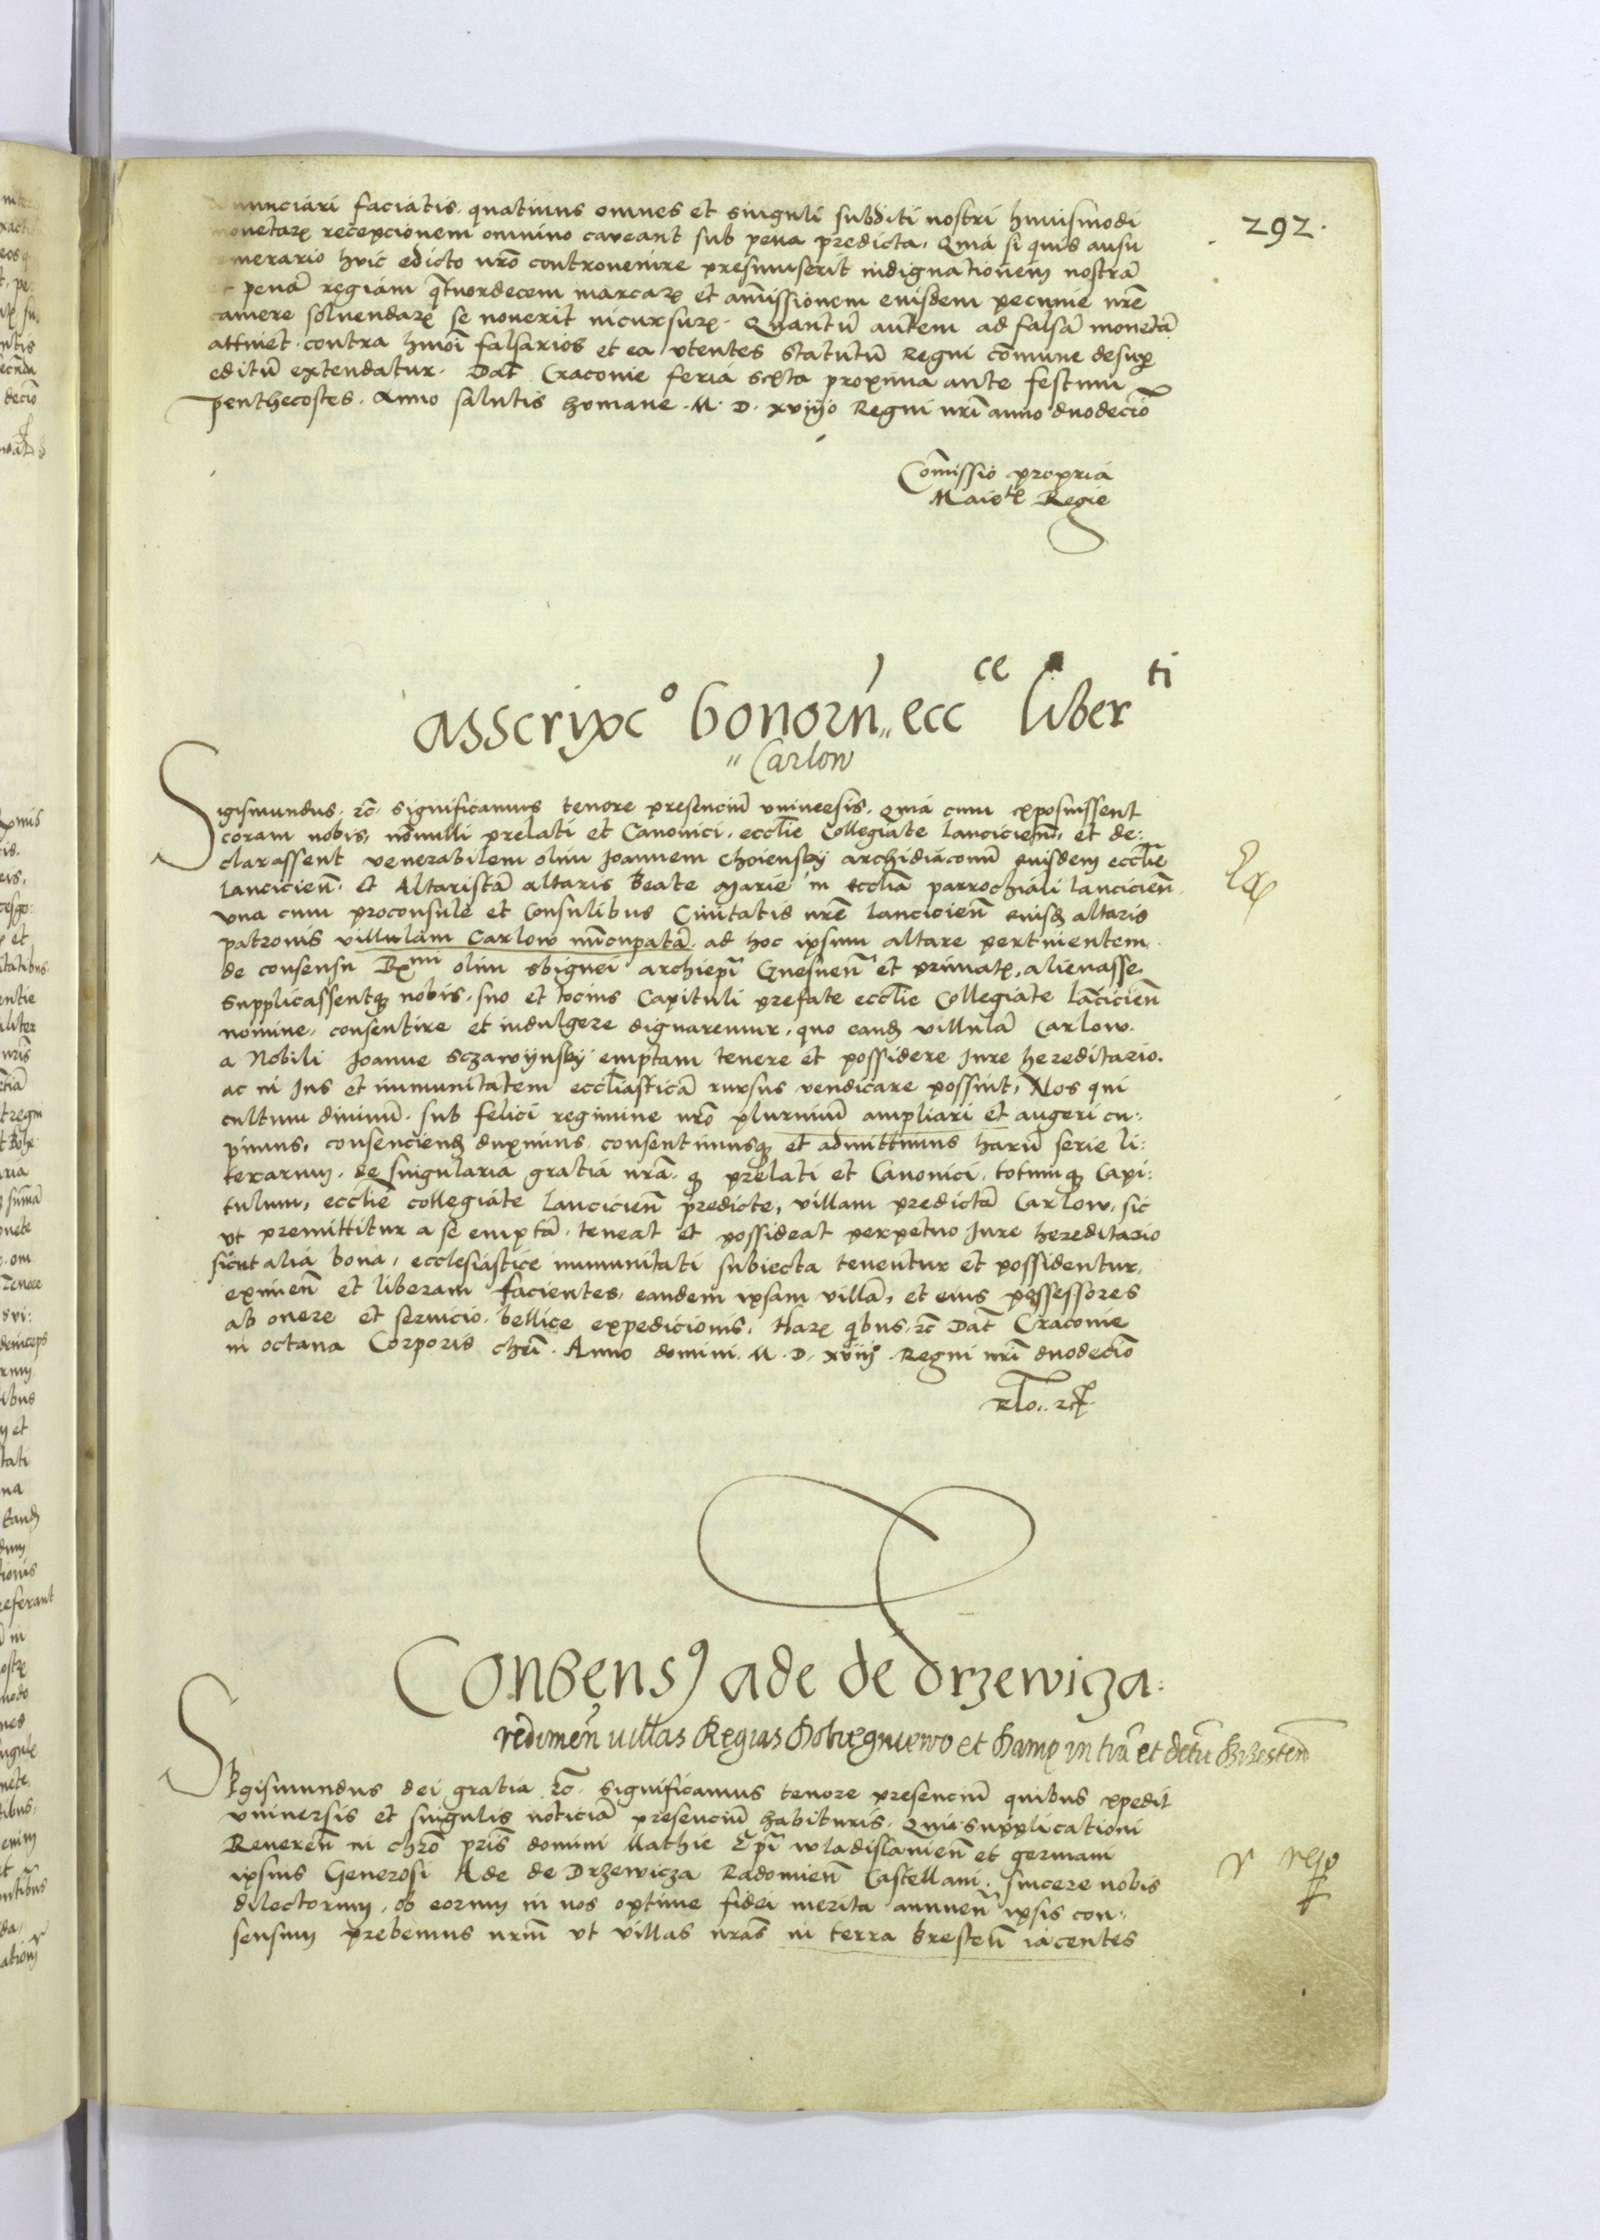 292.
nunciari faciatis. quatinus omnes et singuli subditi nostri huiusmodi
monetarꝫ recepcionem omnino caveant sub pena predicta. Quia si quis ausu
temerario huic edicto nrō controvenire presumserit indignationem nostrā
et penā regiam qtuordecem marcarꝫ et amissionem euisdem pecunie nrē
camere soluendarꝫ se noverit incursurꝫ. Quantū autem ad falsā monetā
attinet. contra hmōi falsarios et ea utentes Statutū Regni cōmune desuꝑ
editū extendatur. Dat̄ Cracovie feria sexta proxima ante festum
penthecostes. Anno salutis humane. M. D. xviijo Regni nrī anno duodecīo
Cōmissio propria
Maiotꝫ Regie
Asscripcᵒ bonorū ecccᵉ liberᵗⁱ
Carlow
Sigismundus. ꝛc̄. significamus tenore presenciū vniversis. quia cum exposuissent
coram nobis, nōnulli prelati et Canonici. ecclīe Collegiate lanciciēn, et de:
clarassent venerabilem olim Joannem Choiensky archidiaconū euisdem ecclīe
lanciciēn. et Altaristā altaris Beate Marie in ecclīa parrochiali lanciciēn.
vna cum proconsule et Consulibus Ciuitatis nrē lanciciēn euisdꝫ altaris
patronis villulam Carlow nūcupatā. ad hoc ipsum altare pertinentem.
de consensu Rxᵐⁱ olim sbignei archiepī Gnesnen̄ et primatꝫ, alienasse.
Supplicassentqꝫ nobis. suo et tocius Capituli prefate ecclīe Collegiate lācicien̄
nomine. consentire et indulgere dignaremur. quo eandꝫ villulā Carlow.
a Nobili Joanne Sczawynsky emptam tenere et possidere Jure hereditario.
ac in Jus et immunitatem eccliasticā rursus vendicare possint, Nos qui
cultum diuinū. sub felici regimine nrō plurimū ampliari et augeri cu:
pimus, consenciendꝫ duximus. consentimusqꝫ et admittimus harū serie li:
terarum. de singularia gratia nrā. qꝫ prelati et Canonici. totumqꝫ Capi:
tulum, ecclīe collegiate lanciciēn predicte, villam predictā Carlow. sic
vt premittitur a se emptā. teneat et possideat perpetuo Jure hereditario
sicut alia bona, ecclesiastice immunitati subiecta tenentur et possidentur.
eximen̄ et liberam facientes, eandem ipsam villā, et eius possessores
ab onere et seruicio. bellice expedicionis. Harꝫ qibus. ꝛc̄ Dat̄ Cracovie
in octaua Corporis chrī. Anno domini. M. D. xviijº. Regni nrī duodecīo
Rlo.. ꝛc̄
Consensꝰ ade de drzewicza.
redimen̄ villas Regias Dobiegniewo et Hamꝫ in trā et dctū Brzesten̄
Sigismundus dei gratia ꝛc̄. significamus tenore presenciū quibus expedit
vniuersis et singulis noticiā presenciū habituris. Quia supplicationi
Reueren̄ in chrō pr̄is domini Mathie Epī wladislauien̄ et germani
ipsius Generosi Ade de Drzewicza Radomien̄ Castellani. sincere nobis
dilectorum. ob eorum in nos optime fidei merita annuen̄ ipsis con:
sensum prebemus nrm̄ vt villas nrās in terra bresten̄ iacentes